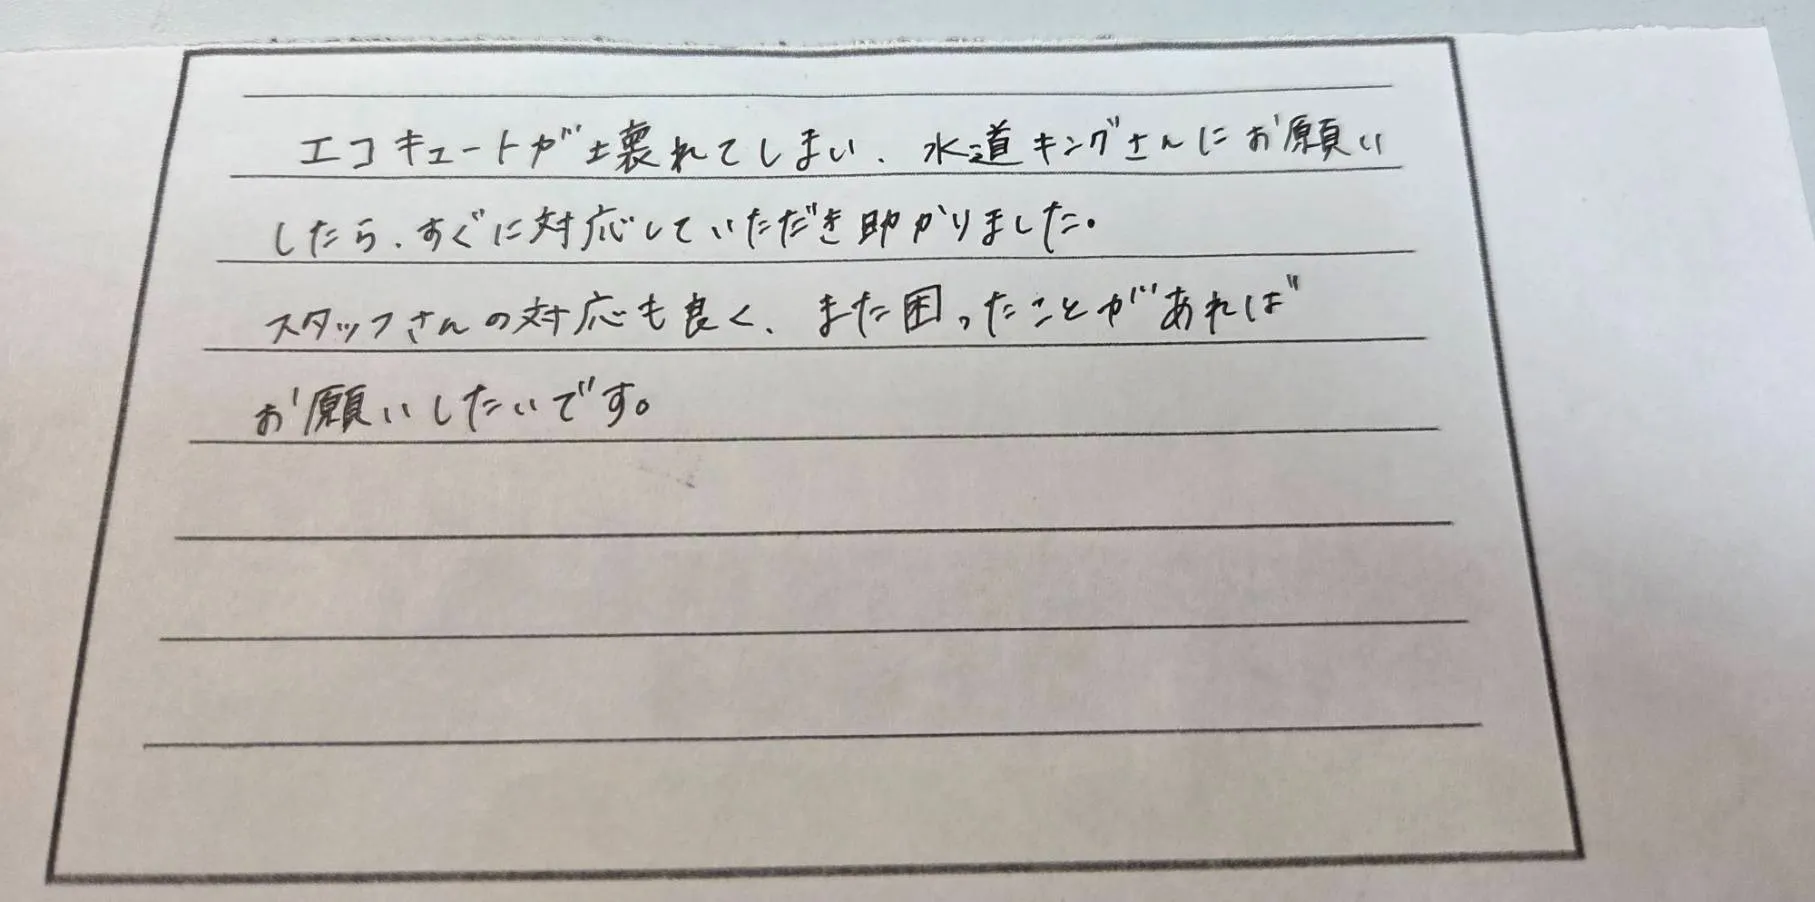 エコキュートが壊れてしまい、水道キングさんにお願い
したら、すぐに対応していただき助かりました。
スタッフさんの対応も良く、また困ったことがあれば
お願いしたいです。